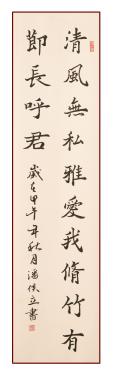 清風無私雅愛我脩竹有
節長呼君
歲在甲午年秋月潘俠立書